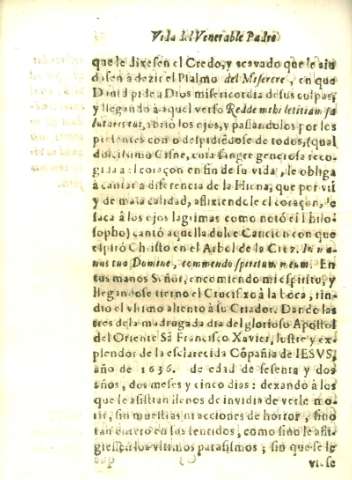 Vida del Venerable Padre
que le dixesen el Credo, y acavado que le aiu
dasen à dezir el Psalmo del Miserere, en que
David pide a Dios misericordia de sus culpas,
y llegando à aquel verso Redde mihi letitiam sa
lutaris tui, abriò los ojos, y passandolos por los
presentes con o despidiẽdose de todos, (qual
dulcissimo Cisne, cuia sangre generosa reco-
gida al coraçon en fin de su vida, le obliga
à cantar a diferencia de la Hiena, que por vil
y de mala calidad, afligiendole el coraçon, le
saca à los ojos lagrimas como notó el Philo-
sopho) cantò aquella dulce Cancion con que
espirò Christo en el Arbol de la Cruz. In ma
nus tua Domine, commendo spiritum meum. En
tus manos Señor, encomiendo mi espiritu, y
llegandose tierno el Crucifixo à la boca, rin-
dio el vltimo aliento à su Criador. Dando las
tres de la madrugada dia del glorioso Apostol
del Oriente Sã Francisco Xavier, lustre y ex-
plendor de la esclarecida Cõpañia de IESVS,
año de 1636. de edad de sesenta y dos
años, dos meses y cinco dias: dexando à los
que le assistian llenos de invidia de verle mo-
rir, sin muestras ni acciones de horror, sino
tan entero en sus sentidos, como sino le afli-
giessen los vltimos parasismos; sin que se le
vi-se